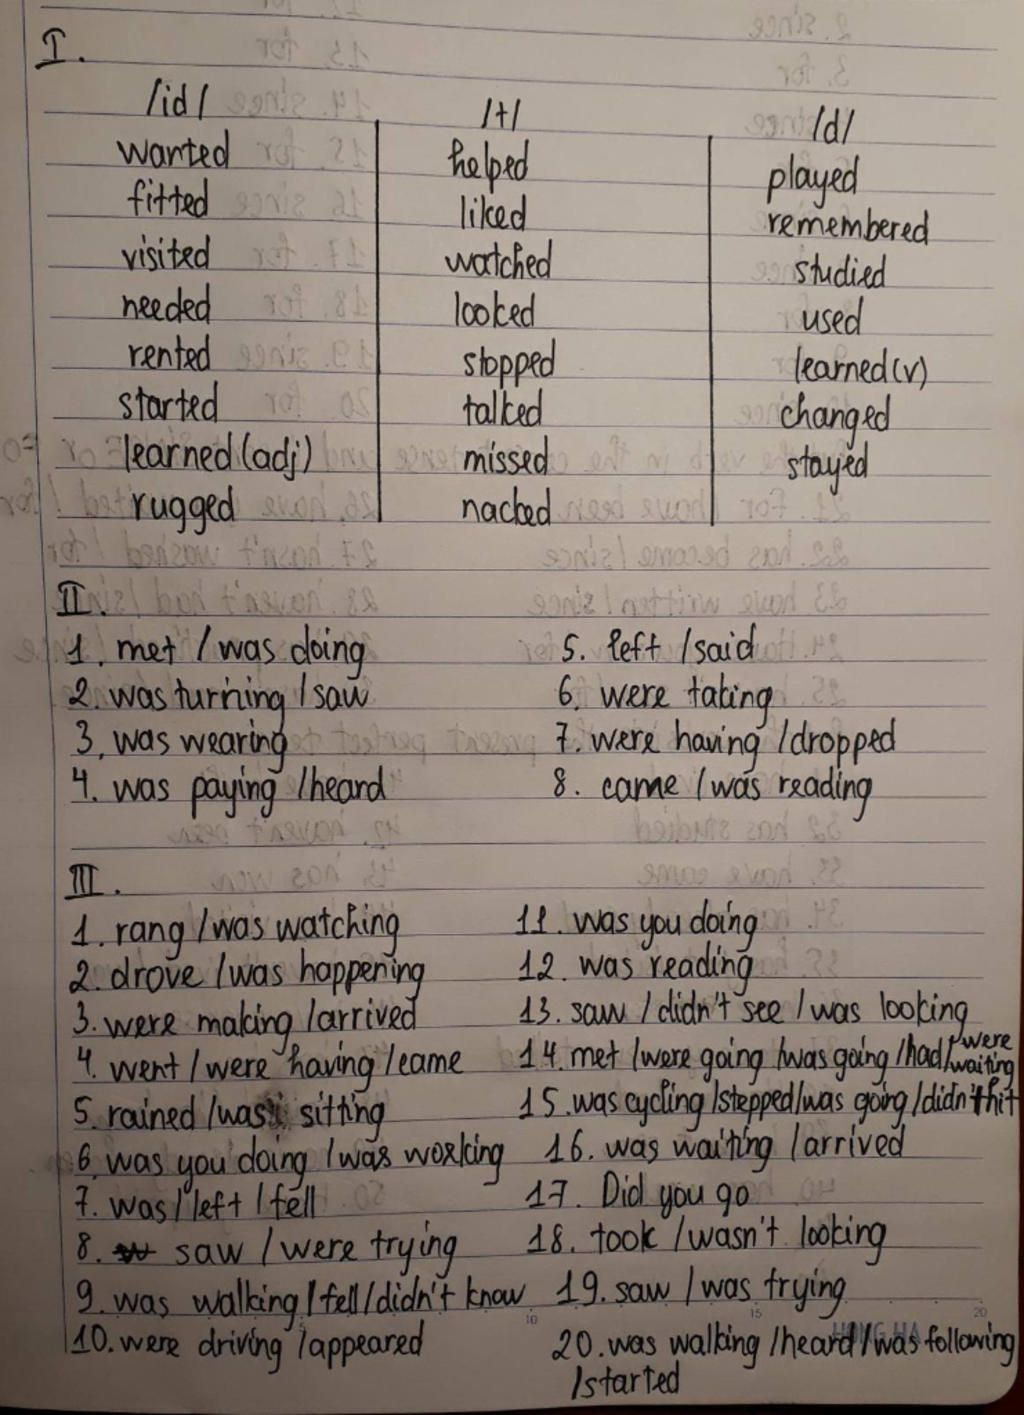 I.
/id/ /t/ /d/
wanted helped played
fitted liked remembered
visited watched studied
needed looked used
rented stopped learned(v)
started talked changed
learned(adj) missed stayed
rugged nacked
II.
1. met / was doing 5. left / said
2. was turning / saw 6. were taking
3. was wearing 7. were having / dropped
4. was paying / heard 8. came / was reading
III.
1. rang / was watching 11. was you doing
2. drove / was happening 12. was reading
3. were making / arrived 13. saw / didn't see / was looking
4. went / were having / came 14. met / were going / was going / had / were waiting
5. rained / was sitting 15. was cycling / stepped / was going / didn't hit
6. was you doing / was working 16. was waiting / arrived
7. was / left / fell 17. Did you go
8. saw / were trying 18. took / wasn't looking
9. was walking / fell / didn't know 19. saw / was trying
10. were driving / appeared 20. was walking / heard / was following
/ started
10 15 20
HONG HA